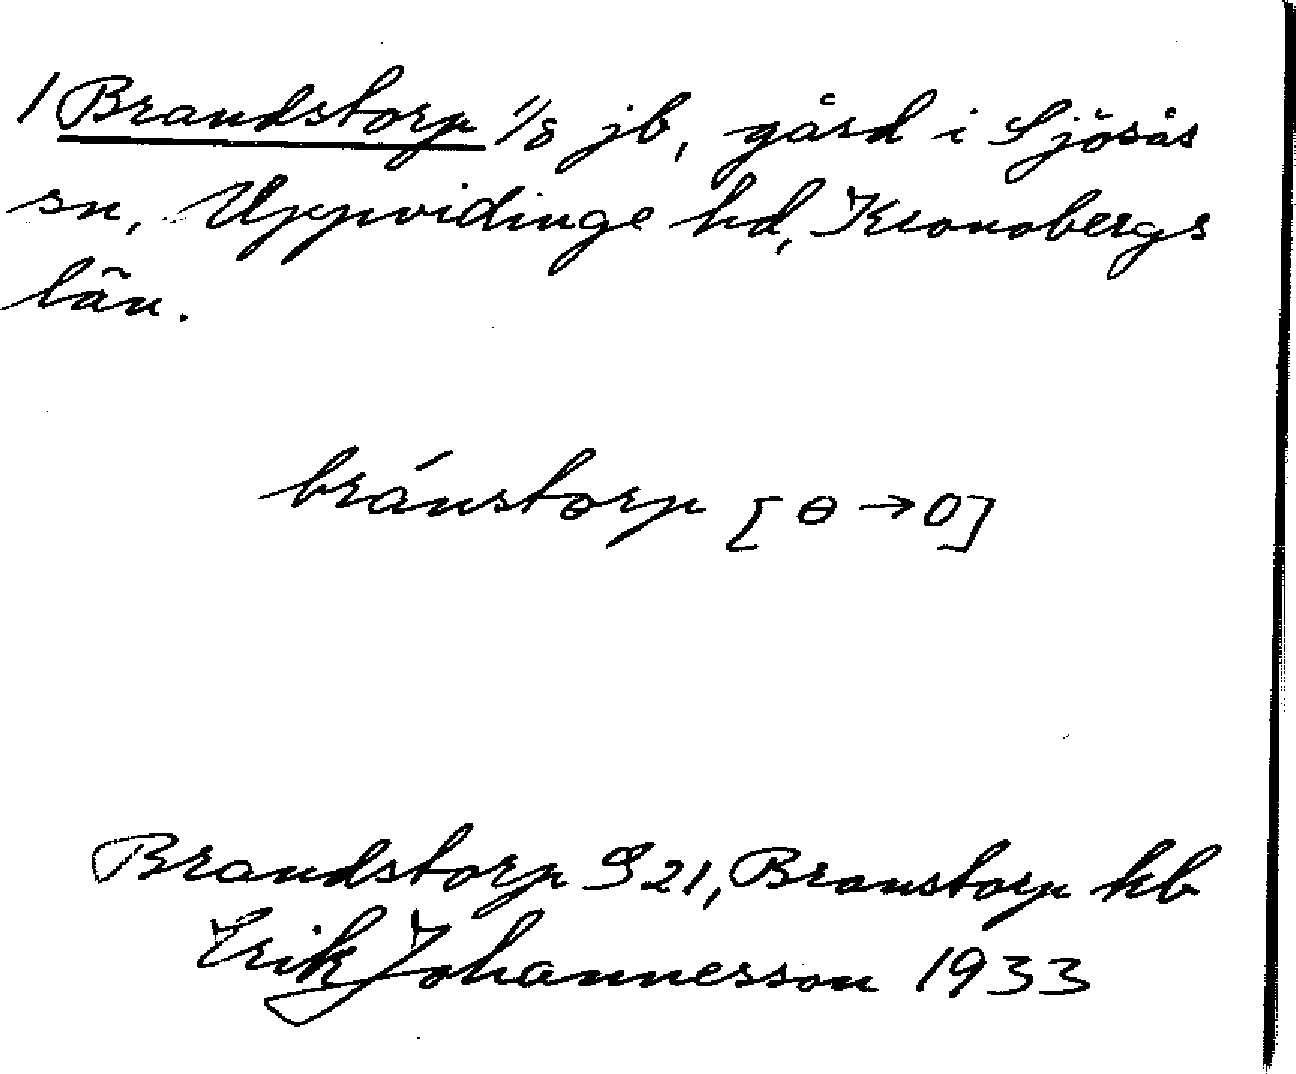 / Brandstorp 1/8 jb, gård i Sjösås
sn, Uppvidinge hd, Kronobergs
län.
bránstorp [ɵ → o]
Brandstorp S 21, Branstorp kb
Erik Johannesson 1933